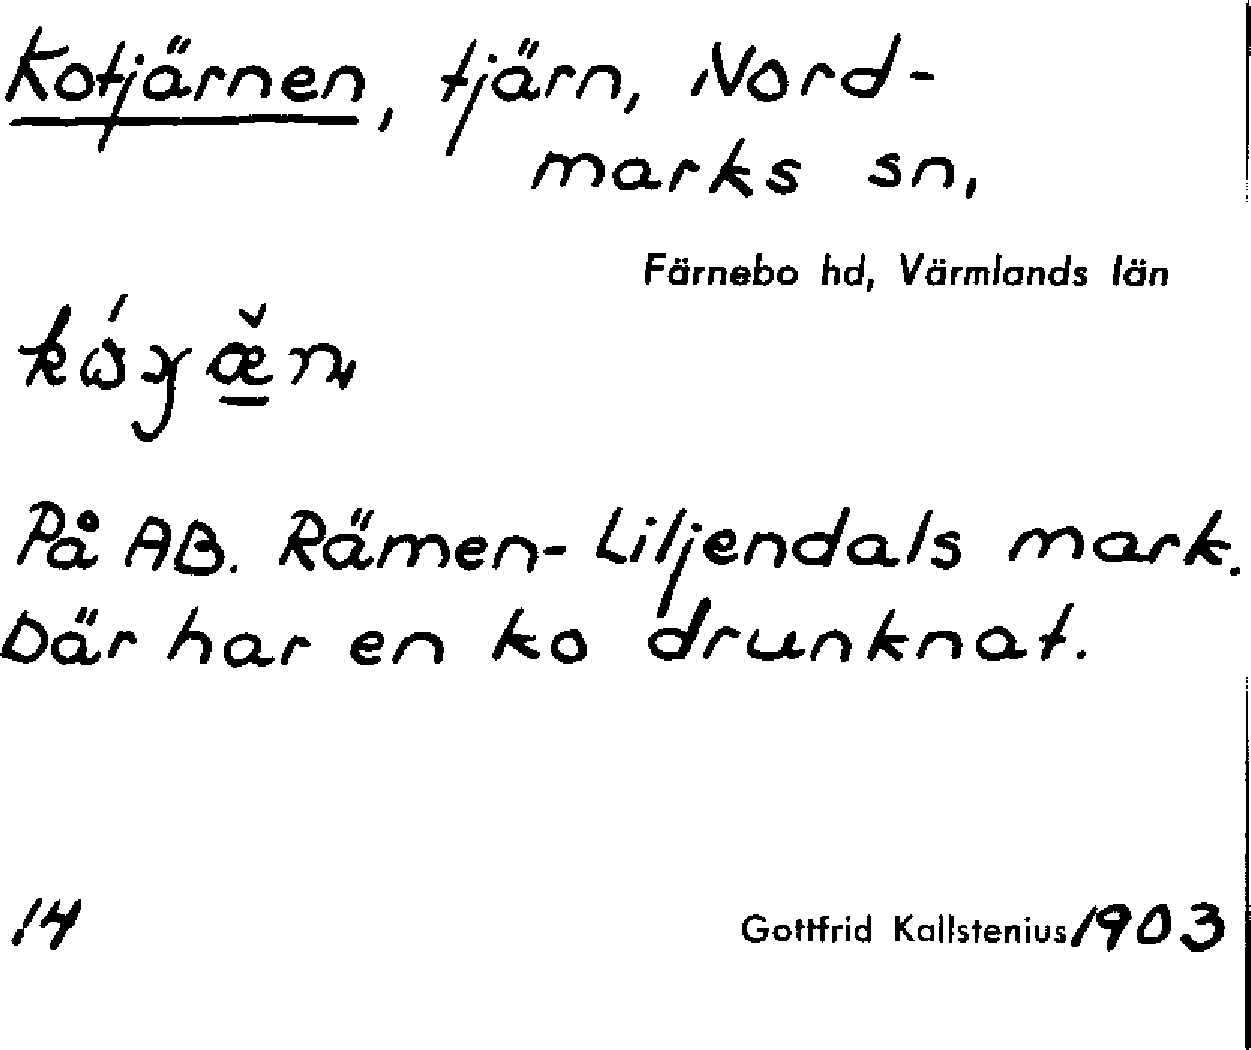 Kotjärnen, tjärn, Nord-
marks sn,
Färnebo hd, Värmlands län
På AB. Rämen-Liljendals mark.
Där har en ko drunknat.
14
Gottfrid Kallstenius 1903